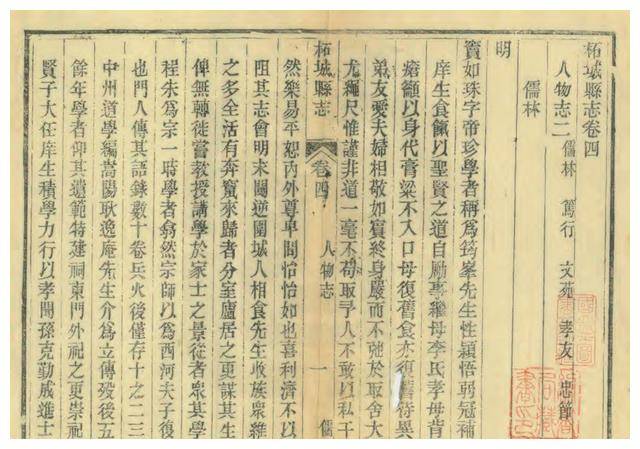 柘城縣志卷四
人物志二 儒林 篤行 文苑 孝友 忠節
儒林
明
竇如珠字帝珍學者稱爲筠峯先生性穎悟弱冠補
庠生食餼以聖賢之道自勵事繼母李氏孝母背
瘡籲以身代膏粱不入口母復舊食亦復舊待異
弟友愛夫婦相敬如賓終身嚴而不弛於取舍大
尤繩尺惟謹非道一毫不苟取予人不敢以私干
柘城縣志 卷四 人物志 一 儒
然樂易平恕內外尊卑間怡怡如也喜利濟不以
阻其志會明末闖逆圍城人相食先生收族衆雜
之多全活有奔竄來歸者分室廬居之更謀其生
俾無轉徙嘗教授講學於家士之景從者衆其學
程朱爲宗一時學者翕然宗師以爲西河夫子復
也門人傳其語錄數十卷兵火後僅存十之二三
中州道學編嵩陽耿逸庵先生介爲立傳歿後五
餘年學者仰其遺範特建祠東門外祀之更崇祀
賢子大任庠生積學力行以孝聞孫克勤成進士